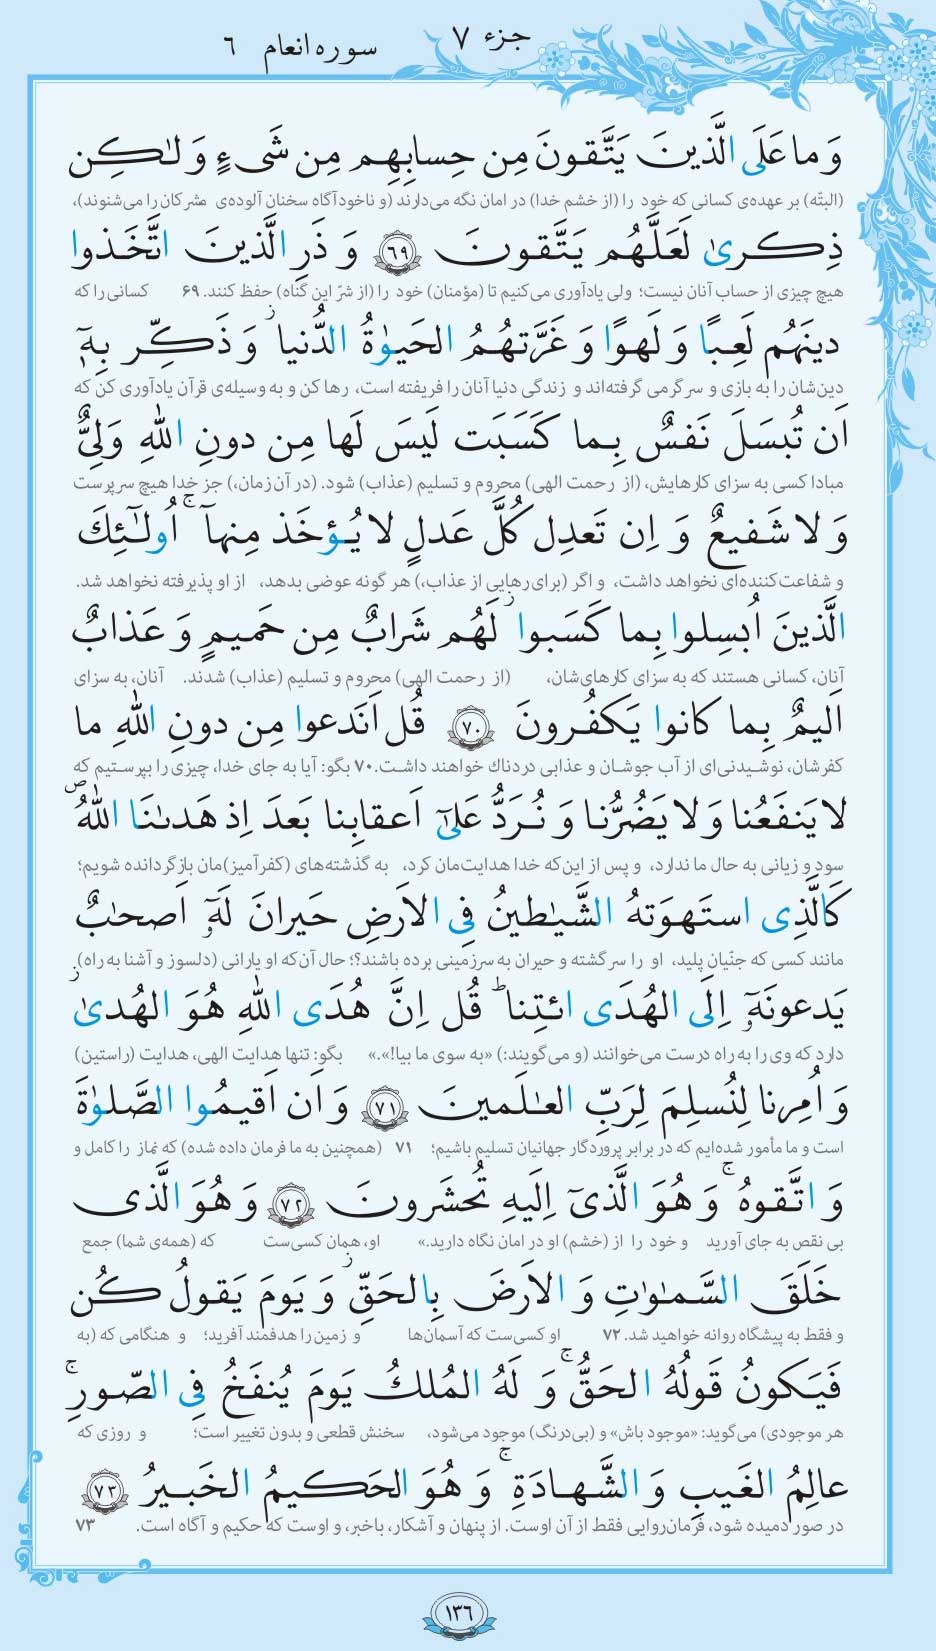 جزء ۷
سوره انعام ۶
وَ ما عَلَى الَّذینَ یَتَّقونَ مِن حِسابِهِم مِن شَیءٍ وَ لٰکِن
(البتّه) بر عهده‌ی کسانی که خود را (از خشم خدا) در امان نگه می‌دارند (و ناخودآگاه سخنان آلوده‌ی مشرکان را می‌شنوند)،
ذِکریٰ لَعَلَّهُم یَتَّقونَ ﴿۶۹﴾ وَ ذَرِ الَّذینَ اتَّخَذوا
هیچ چیزی از حساب آنان نیست؛ ولی یادآوری می‌کنیم تا (مؤمنان) خود را (از شرّ این گناه) حفظ کنند. ۶۹ کسانی را که
دینَهُم لَعِبًا وَ لَهوًا وَ غَرَّتهُمُ الحَیوٰةُ الدُّنیا ۚ وَ ذَکِّر بِهٖٓ
دین‌شان را به بازی و سرگرمی گرفته‌اند و زندگی دنیا آنان را فریفته است، رها کن و به وسیله‌ی قرآن یادآوری کن که
اَن تُبسَلَ نَفسٌ بِما کَسَبَت لَیسَ لَها مِن دونِ اللّٰهِ وَلِیٌّ
مبادا کسی به سزای کارهایش، (از رحمت الهی) محروم و تسلیم (عذاب) شود. (در آن زمان،) جز خدا هیچ سرپرست
وَ لا شَفیعٌ وَ اِن تَعدِل کُلَّ عَدلٍ لا یُؤخَذ مِنهآ ۚ اُولٰٓئِكَ
و شفاعت‌کننده‌ای نخواهد داشت، و اگر (برای رهایی از عذاب،) هر گونه عوضی بدهد، از او پذیرفته نخواهد شد.
الَّذینَ اُبسِلوا بِما کَسَبوا ۖ لَهُم شَرابٌ مِن حَمیمٍ وَ عَذابٌ
آنان، کسانی هستند که به سزای کارهای‌شان، (از رحمت الهی) محروم و تسلیم (عذاب) شدند. آنان، به سزای
اَلیمٌ بِما کانوا یَکفُرونَ ﴿۷۰﴾ قُل اَنَدعوا مِن دونِ اللّٰهِ ما
کفرشان، نوشیدنی‌ای از آب جوشان و عذابی دردناك خواهند داشت. ۷۰ بگو: آیا به جای خدا، چیزی را بپرستیم که
لا یَنفَعُنا وَ لا یَضُرُّنا وَ نُرَدُّ عَلیٰٓ اَعقابِنا بَعدَ اِذ هَدىٰنَا اللّٰهُ ۖ
سود و زیانی به حال ما ندارد، و پس از این‌که خدا هدایت‌مان کرد، به گذشته‌های (کفرآمیز)مان بازگردانده شویم؛
کَالَّذِی استَهوَتهُ الشَّیٰطینُ فِی الاَرضِ حَیرانَ لَهٗٓ اَصحٰبٌ
مانند کسی که جنّیان پلید، او را سرگشته و حیران به سرزمینی برده باشند؟؛ حال آن‌که او یارانی (دلسوز و آشنا به راه)
یَدعونَهٗٓ اِلَی الهُدَی ائتِنا ۗ قُل اِنَّ هُدَی اللّٰهِ هُوَ الهُدیٰ ۖ
دارد که وی را به راه درست می‌خوانند (و می‌گویند:) «به سوی ما بیا!».» بگو: تنها هدایت الهی، هدایت (راستین)
وَ اُمِرنا لِنُسلِمَ لِرَبِّ العٰلَمینَ ﴿۷۱﴾ وَ اَن اَقیمُوا الصَّلوٰةَ
است و ما مأمور شده‌ایم که در برابر پروردگار جهانیان تسلیم باشیم؛ ۷۱ (همچنین به ما فرمان داده شده) که نماز را کامل و
وَ اتَّقوهُ ۚ وَ هُوَ الَّذیٓ اِلَیهِ تُحشَرونَ ﴿۷۲﴾ وَ هُوَ الَّذی
بی نقص به جای آورید و خود را از (خشم) او در امان نگاه دارید.» او، همان کسی‌ست که (همه‌ی شما) جمع
خَلَقَ السَّمٰوٰتِ وَ الاَرضَ بِالحَقِّ ۖ وَ یَومَ یَقولُ کُن
و فقط به پیشگاه روانه خواهید شد. ۷۲ او کسی‌ست که آسمان‌ها و زمین را هدفمند آفرید؛ و هنگامی که (به
فَیَکونُ قَولُهُ الحَقُّ ۚ وَ لَهُ المُلكُ یَومَ یُنفَخُ فِی الصّورِ ۚ
هر موجودی) می‌گوید: «موجود باش» و (بی‌درنگ) موجود می‌شود، سخنش قطعی و بدون تغییر است؛ و روزی که
عالِمُ الغَیبِ وَ الشَّهادَةِ ۚ وَ هُوَ الحَکیمُ الخَبیرُ ﴿۷۳﴾
در صور دمیده شود، فرمان‌روایی فقط از آن اوست. از پنهان و آشکار، باخبر، و اوست که حکیم و آگاه است. ۷۳
۱۳۶